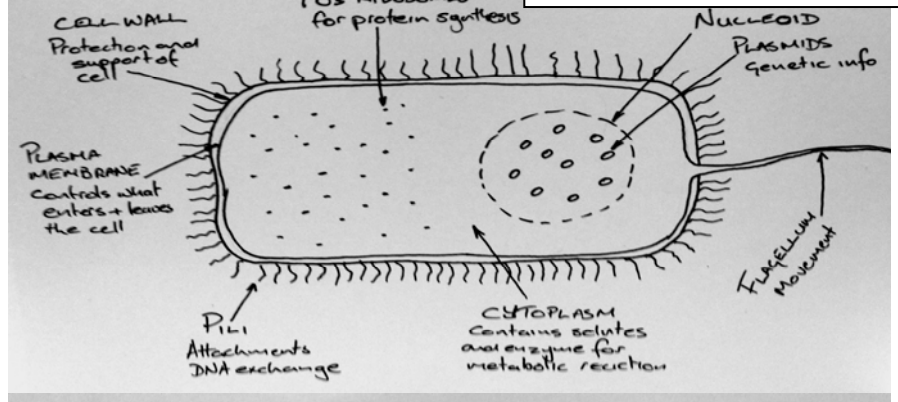 CELL WALL
Protection and
support of
cell
for protein synthesis
NUCLEOID
PLASMIDS
Genetic info
PLASMA
MEMBRANE
Controls what
enters + leaves
the cell
FLAGELLUM
Movement
PILI
Attachments
DNA exchange
CYTOPLASM
Contains solutes
and enzyme for
metabolic reaction